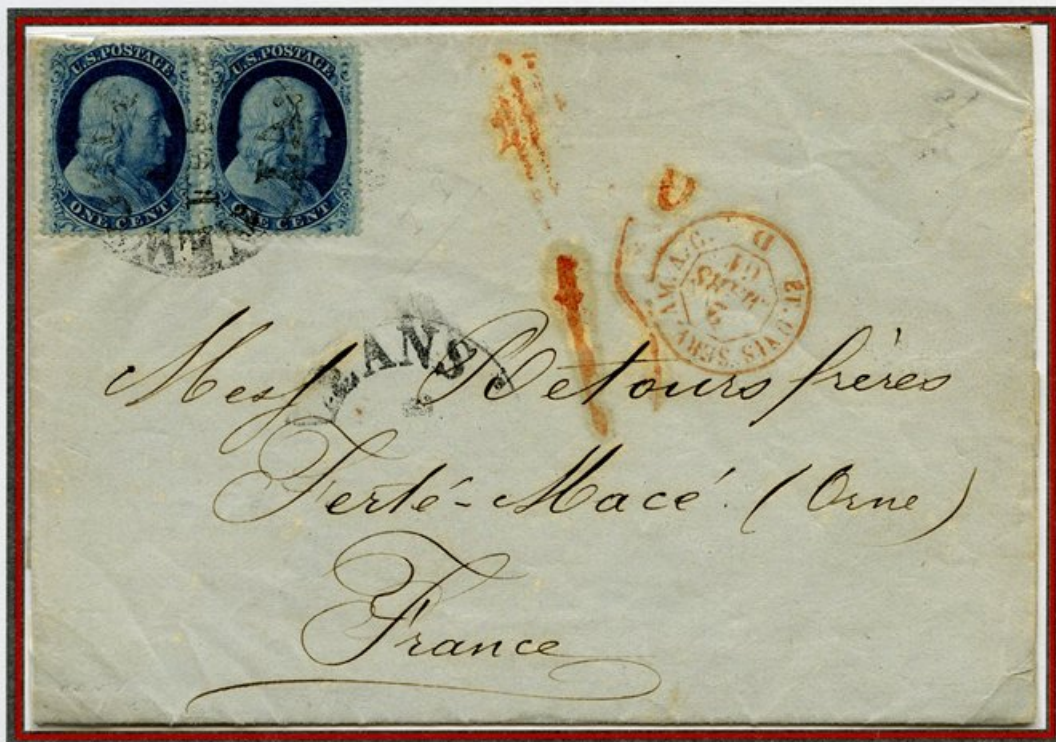 U.S. POSTAGE
ONE CENT
U.S. POSTAGE
ONE CENT
ET. UNIS SERV. AM. A.C.
D
2
MARS
61
LEANS
Mess Retours frères
Ferté-Macé (Orne)
France